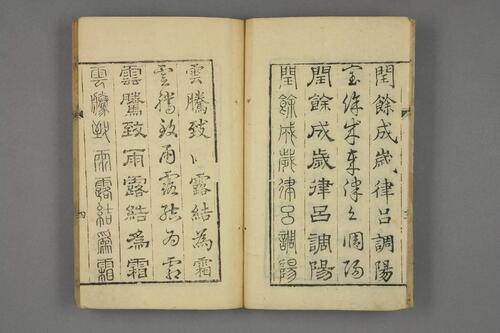 閏餘成歲律呂調陽
閏餘成歲律呂調陽
閏餘成歲律呂調陽
閏餘成歲律呂調陽
雲騰致雨露結為霜
雲騰致雨露結為霜
雲騰致雨露結為霜
雲騰致雨露結爲霜